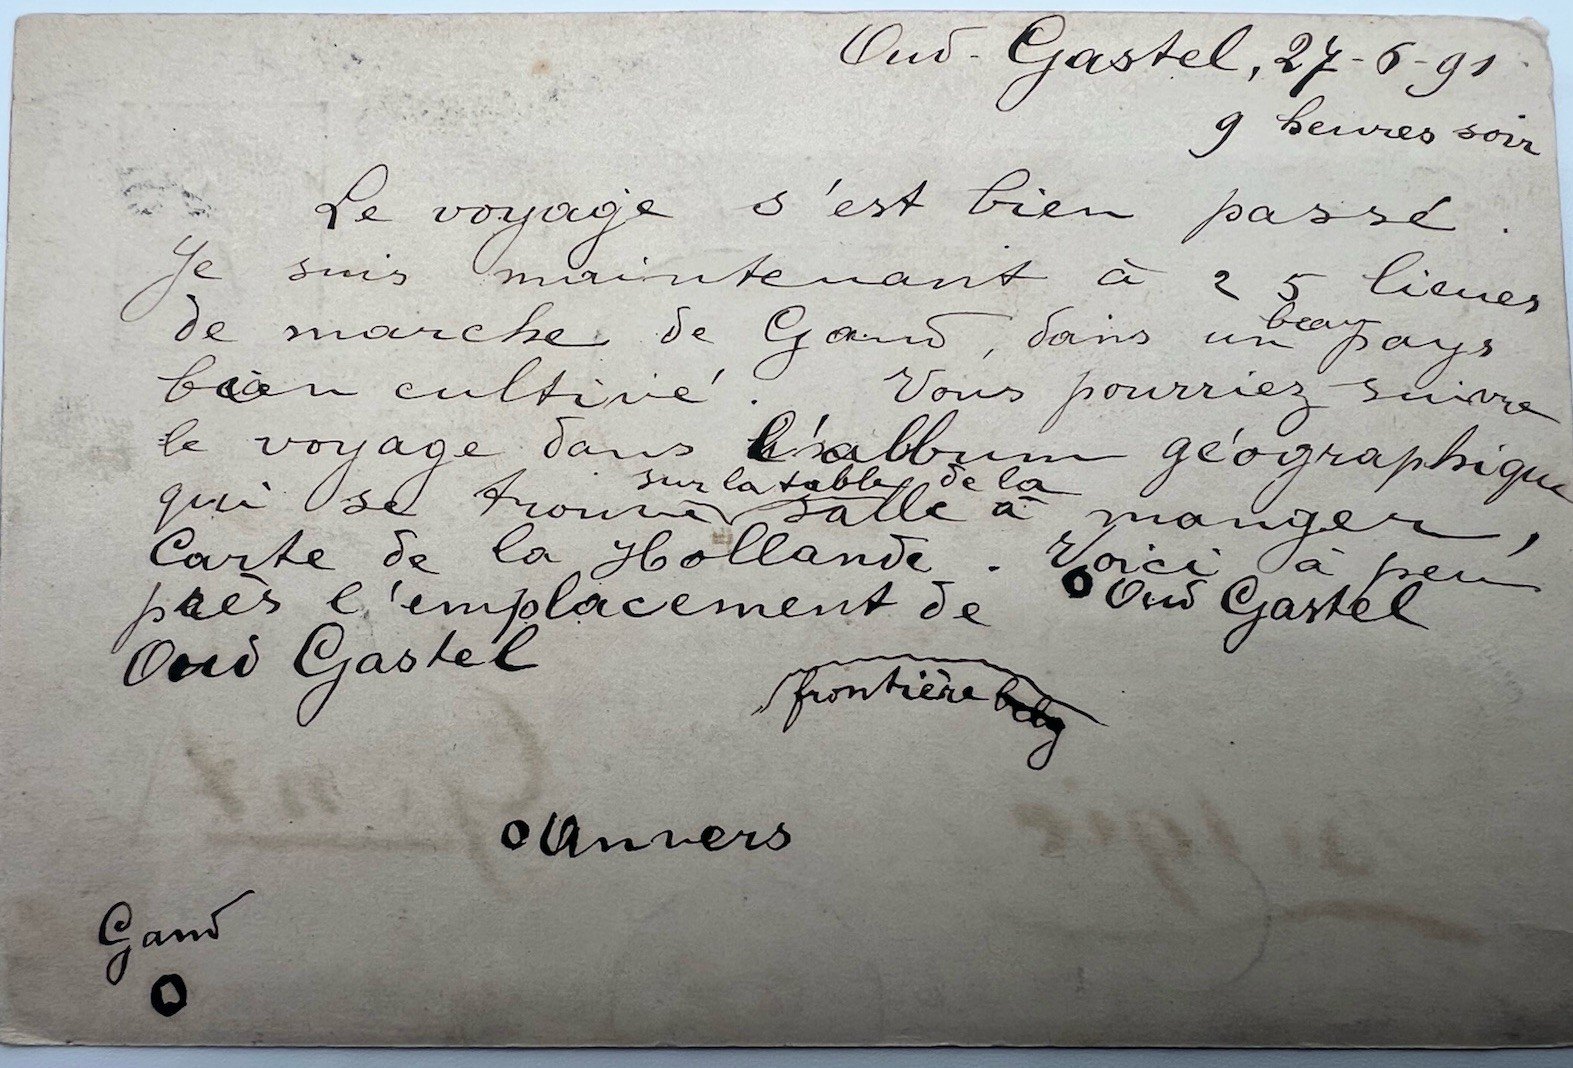 Oud-Gastel, 27-6-91
9 heures soir
Le voyage s'est bien passé.
Je suis maintenant à 25 lieues
de marche de Gand, dans un beau pays
bien cultivé. Vous pourriez suivre
le voyage dans l'album géographique
qui se trouve sur la table de la salle à manger,
Carte de la Hollande. Voici à peu
près l'emplacement de
Oud Gastel
Oud Gastel
frontière belg
Anvers
Gand